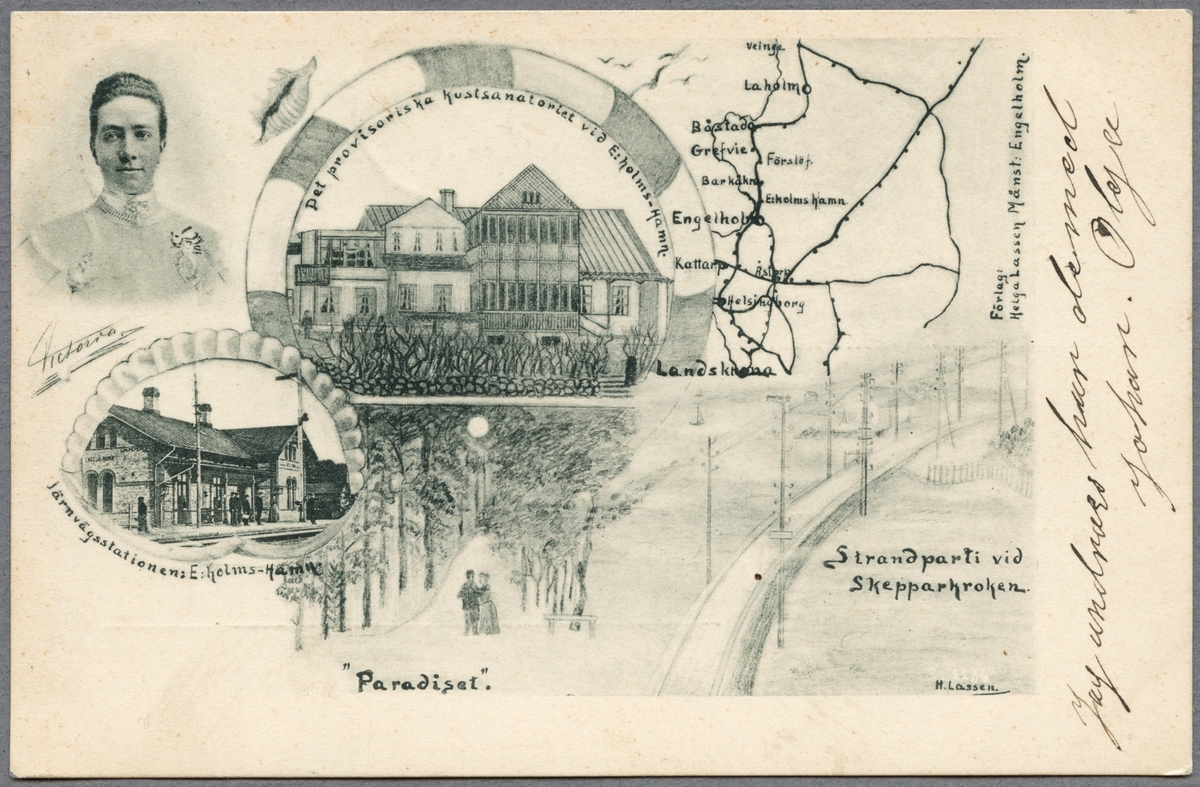 Det provisoriska kustsanatoriet vid E:holms-Hamn.
Veinge
Laholm
Båstad
Grefvie
Förslöf.
Barkåkra
E:holms hamn
Engelholm
Kattarp
Åstorp
Helsingborg
Landskrona
Förlag:
Helga Lassen Månst: Engelholm.
Victoria
Järnvägsstationen: E:holms-Hamn
Strandparti vid
Skepparkroken.
"Paradiset".
H. Lassen.
Jag undrar hur det med
Johan. Olga